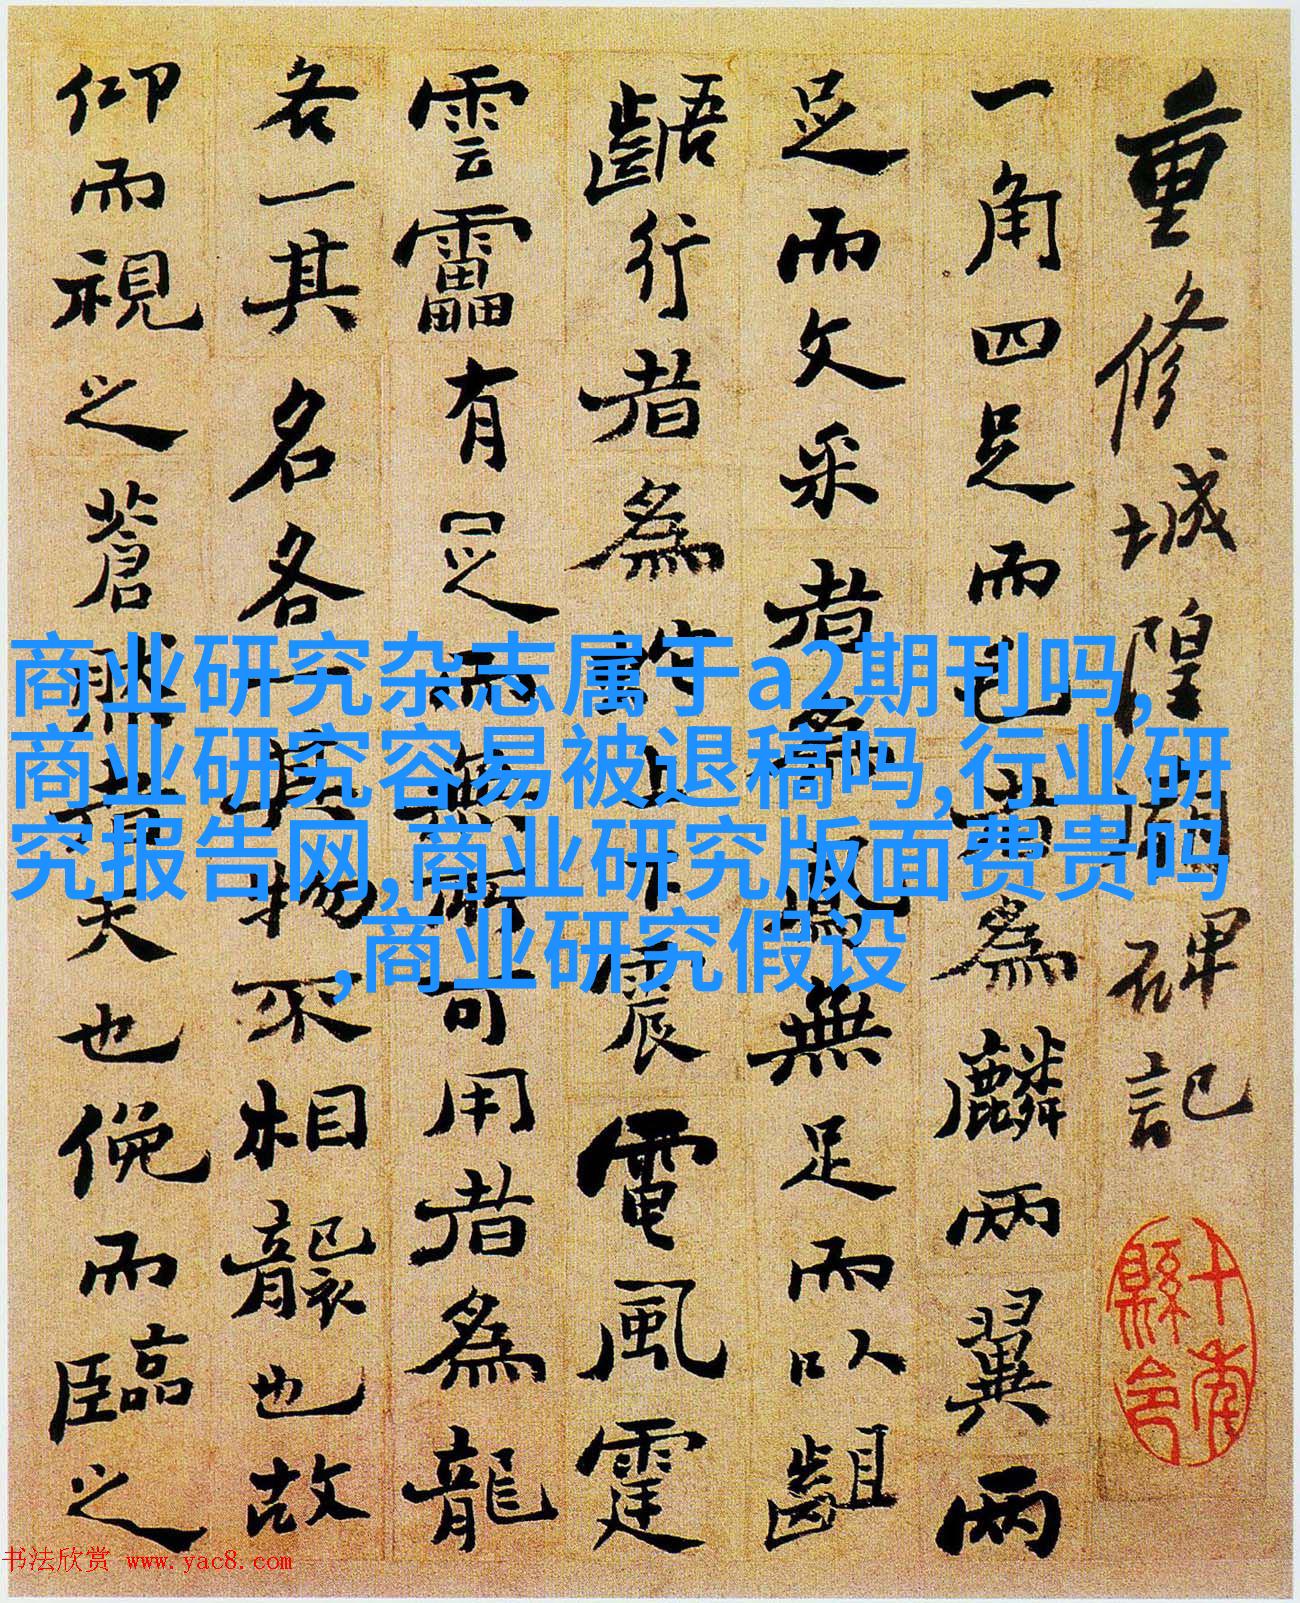 重修城隍廟碑記
一角四足而毛者為麟兩翼兩
足而文采者為鳳無足而以齟
齬行者為蛇上下震電風霆
雲靁有足而無所可用者為龍
各一其名各一其物不相襲也故
仰而視之蒼然者天也俛而臨之
商业研究杂志属于a2期刊吗,
商业研究容易被退稿吗,行业研
究报告网,商业研究版面费贵吗
,商业研究假设
书法欣赏 www.yac8.com